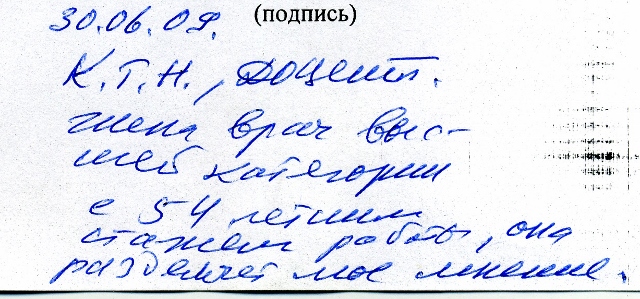 30.06.09. (подпись)
К.Т.Н., Доцент.
жена врач выс-
шей категории
с 54 летним
стажем работы, она
разделяет мое мнение.